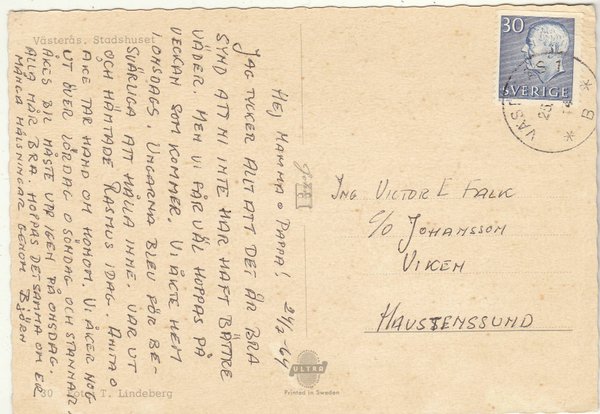 Västerås. Stadshuset
HEJ MAMMA O PAPPA! 24/7-64
JAG TYCKER ALLT ATT DET ÄR BRA
SYND ATT NI INTE HAR HAFT BÄTTRE
VÄDER. MEN VI FÅR VÄL HOPPAS PÅ
VECKAN SOM KOMMER. VI ÅKTE HEM
I ONSDAGS. UNGARNA BLEV FÖR BE-
SVÄRLIGA ATT HÅLLA INNE. VAR UT
OCH HÄMTADE RASMUS IDAG. ANITA O
ÅKE TAR HAND OM HONOM. VI ÅKER NOG
UT ÖVER LÖRDAG O SÖNDAG OCH STANNAR.
ÅKES BIL MÅSTE VA IGEN PÅ ONSDAG.
ALLA MÅR BRA. HOPPAS DETSAMMA OM ER
MÅNGA HÄLSNINGAR GENOM BJÖRN
30 Foto: T. Lindeberg
ULTRA
Printed in Sweden
30
SVERIGE
B
ING. VICTOR E FALK
C/O JOHANSSON
VIKEN
HAUSTENSSUND